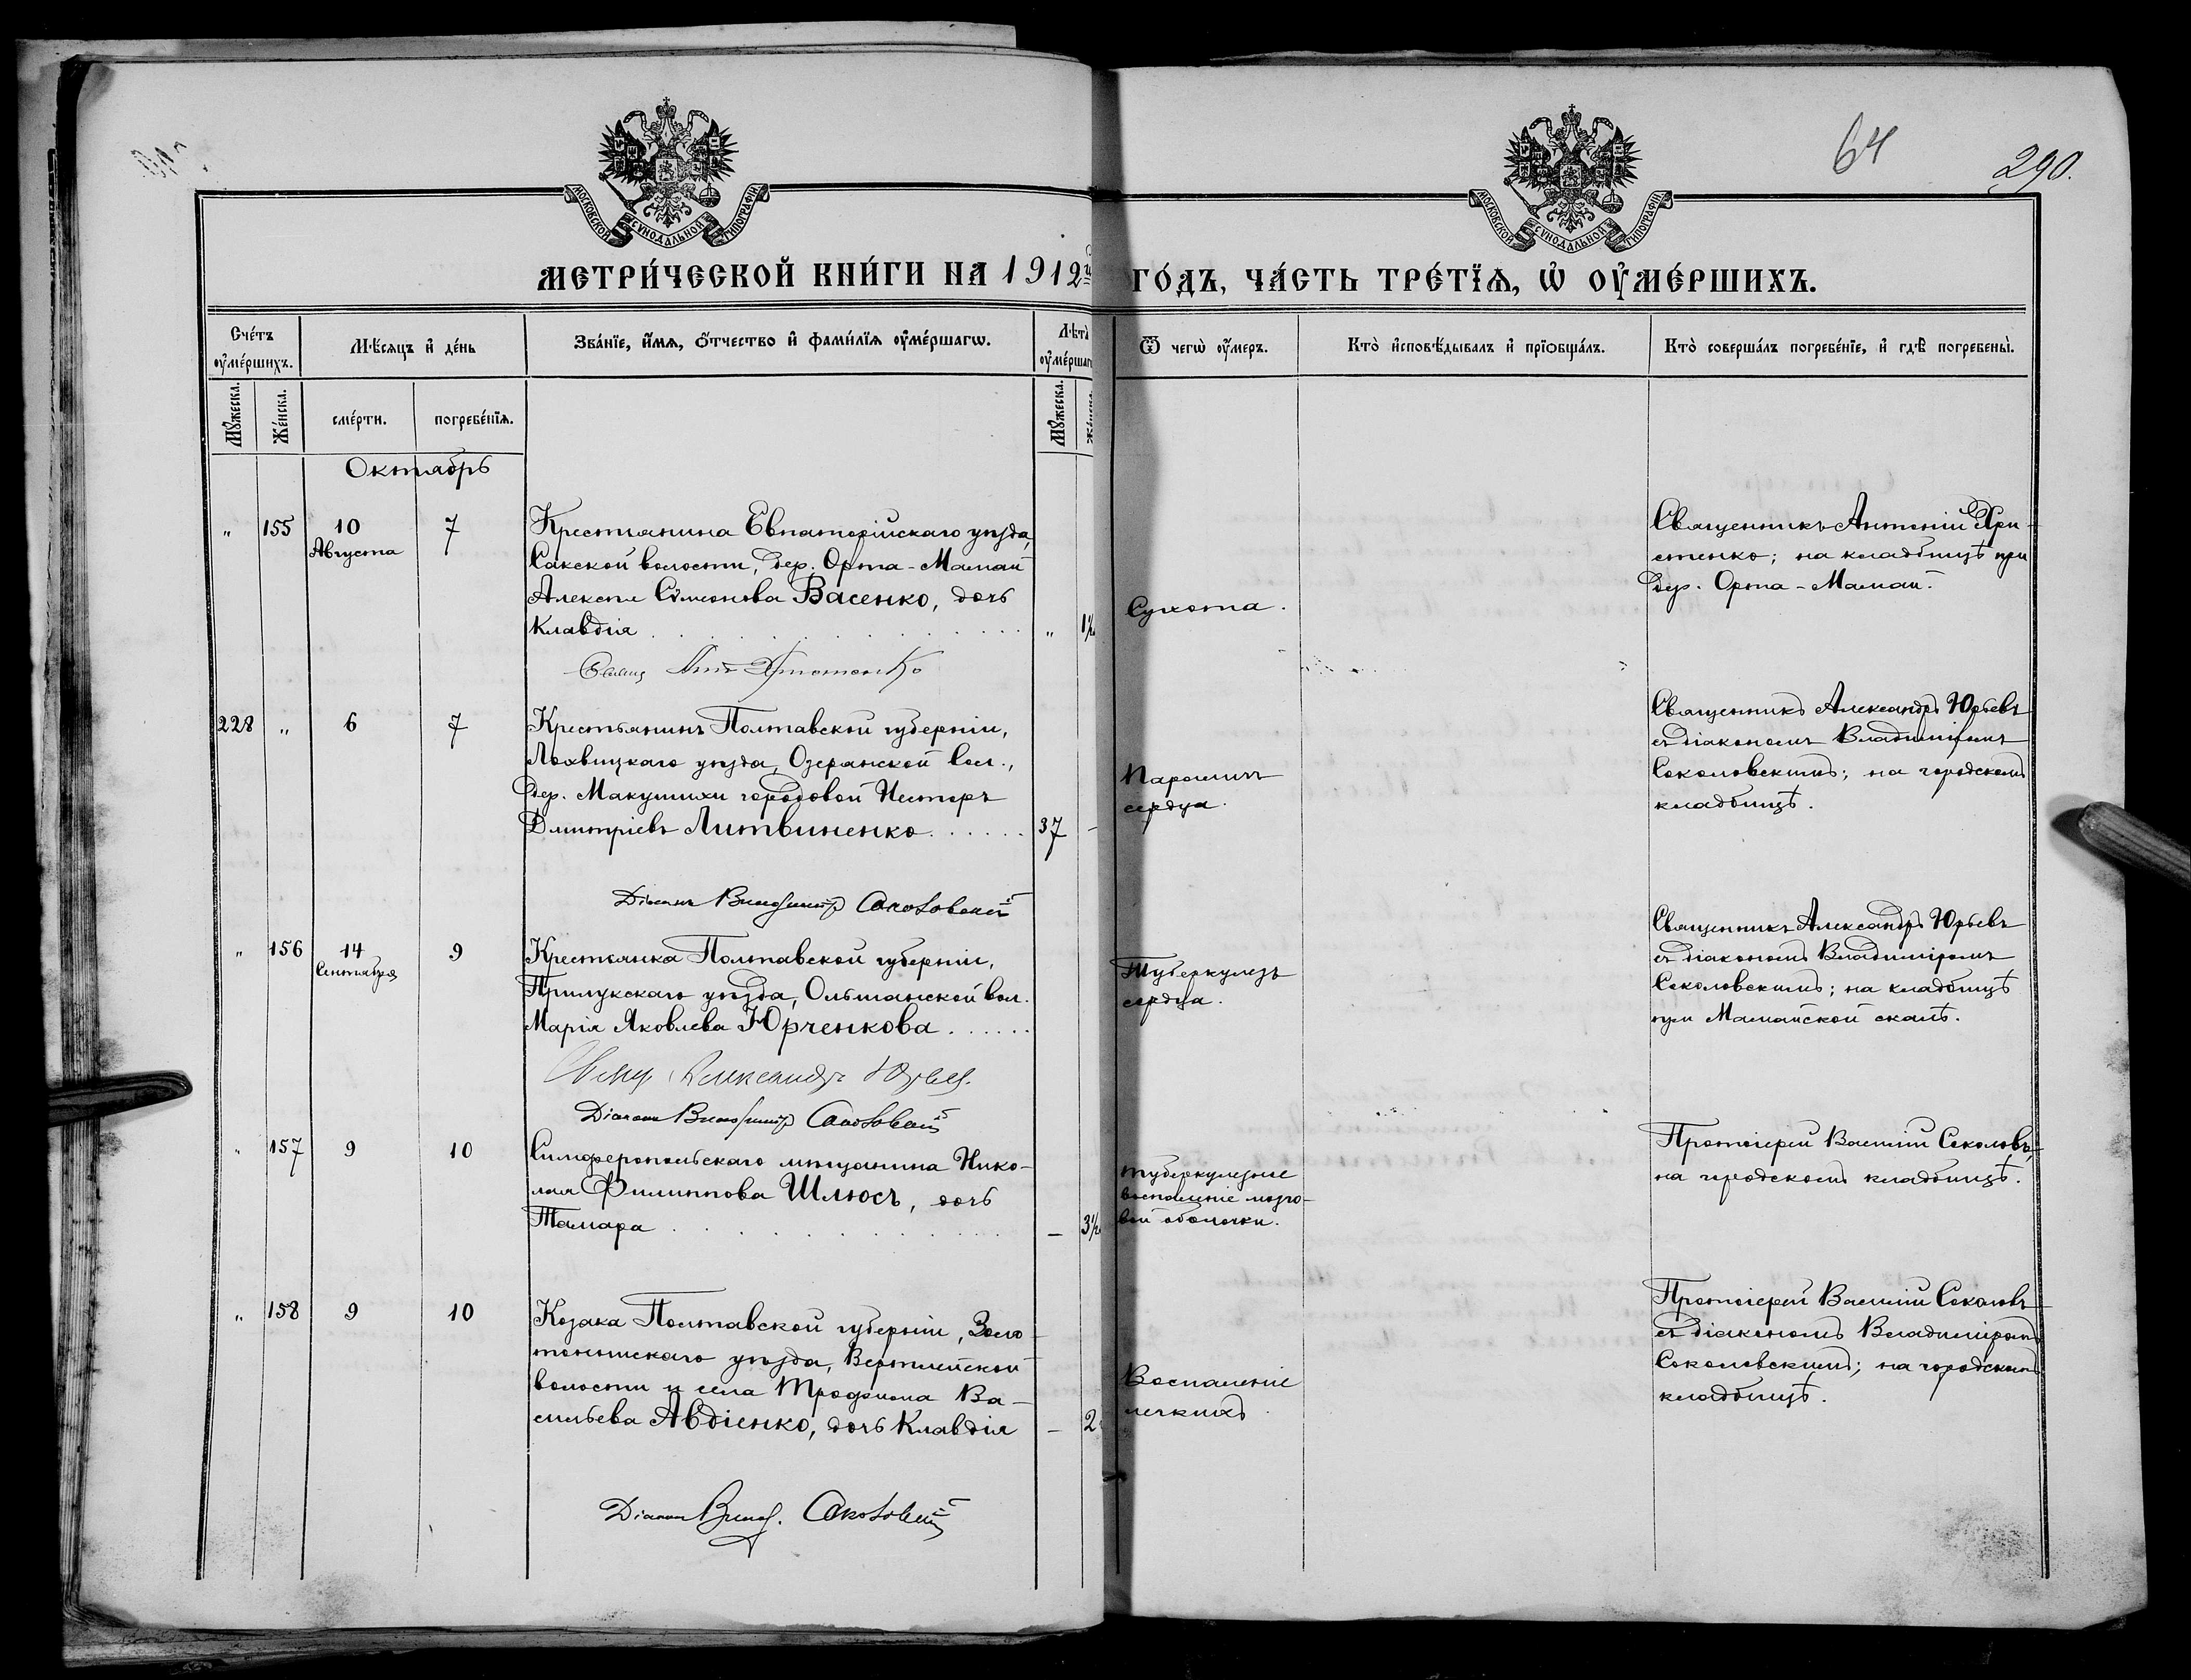 64
290.
МОСКОВСКОЙ СѴНОДАЛЬНОЙ ТИПОГРАФІИ
МОСКОВСКОЙ СѴНОДАЛЬНОЙ ТИПОГРАФІИ
МЕТРИ́ЧЕСКОЙ КНИ́ГИ НА 1912й ГО́ДЪ, ЧА́СТЬ ТРЕ́ТЇѦ, Ѡ҆ ОУ҆МЕ́РШИХЪ.
Сче́тъ оу҆ме́ршихъ.
Мѣ́сяцъ и҆ де́нь
Зва́нїе, и҆́мѧ, ѻ҆́тчество и҆ фами́лїѧ оу҆ме́ршагѡ.
Лѣ́та оу҆ме́ршаг
Ѿ чегѡ̀ оу҆́меръ.
Кто̀ и҆сповѣ́дывалъ и҆ прїѡбща́лъ.
Кто̀ соверша́лъ погребе́нїе, и҆ гдѣ̀ погребены̀.
Мꙋ́жеска. Же́нска. сме́рти. погребе́нїѧ. Мꙋ́жеска. Же́нска.
Октябрь
" 155 10 Августа 7
Крестьянина Евпаторійскаго уѣзда,
Сакской волости, дер. Орта-Мамай
Алексѣя Сѵмеонова Васенко, дочь
Клавдія " 1½
Сухота.
Священникъ Антоній Хри-
стенко; на кладбищѣ при
дер. Орта-Мамай.
Свящ. Ант Христенко
228 " 6 7
Крестьянинъ Полтавской губерніи,
Лохвицкаго уѣзда, Озерянской вол.,
дер. Макушихи городовой Несторъ
Дмитріевъ Литвиненко 37 -
Параличъ
сердца.
Священникъ Александръ Юрьевъ
съ діакономъ Владиміромъ
Соколовскимъ; на городскомъ
кладбищѣ.
Діаконъ Владиміръ Соколовскій
" 156 14 Сентября 9
Крестьянка Полтавской губерніи,
Прилукскаго уѣзда, Ольшанской вол.
Марія Яковлева Юрченкова
Туберкулезъ
сердца.
Священникъ Александръ Юрьевъ
съ діакономъ Владиміромъ
Соколовскимъ; на кладбищѣ
при Мамайской скалѣ.
Свящ. Александръ Юрьев.
Діаконъ Владиміръ Соколовскій
" 157 9 10
Симферопольскаго мѣщанина Нико-
лая Филиппова Шлюсъ, дочь
Тамара - 3½
Туберкулезное
воспаленіе мозго-
вой оболочки.
Протоіерей Василій Соколовъ;
на городскомъ кладбищѣ.
" 158 9 10
Козака Полтавской губерніи, Золо-
тоношскаго уѣзда,
волости и села Трофима Ва-
сильева Авдіенко, дочь Клавдія - 2
Воспаленіе
легкихъ
Протоіерей Василій Соколовъ
съ діакономъ Владиміромъ
Соколовскимъ; на городскомъ
кладбищѣ.
Діаконъ Влад. Соколовскій